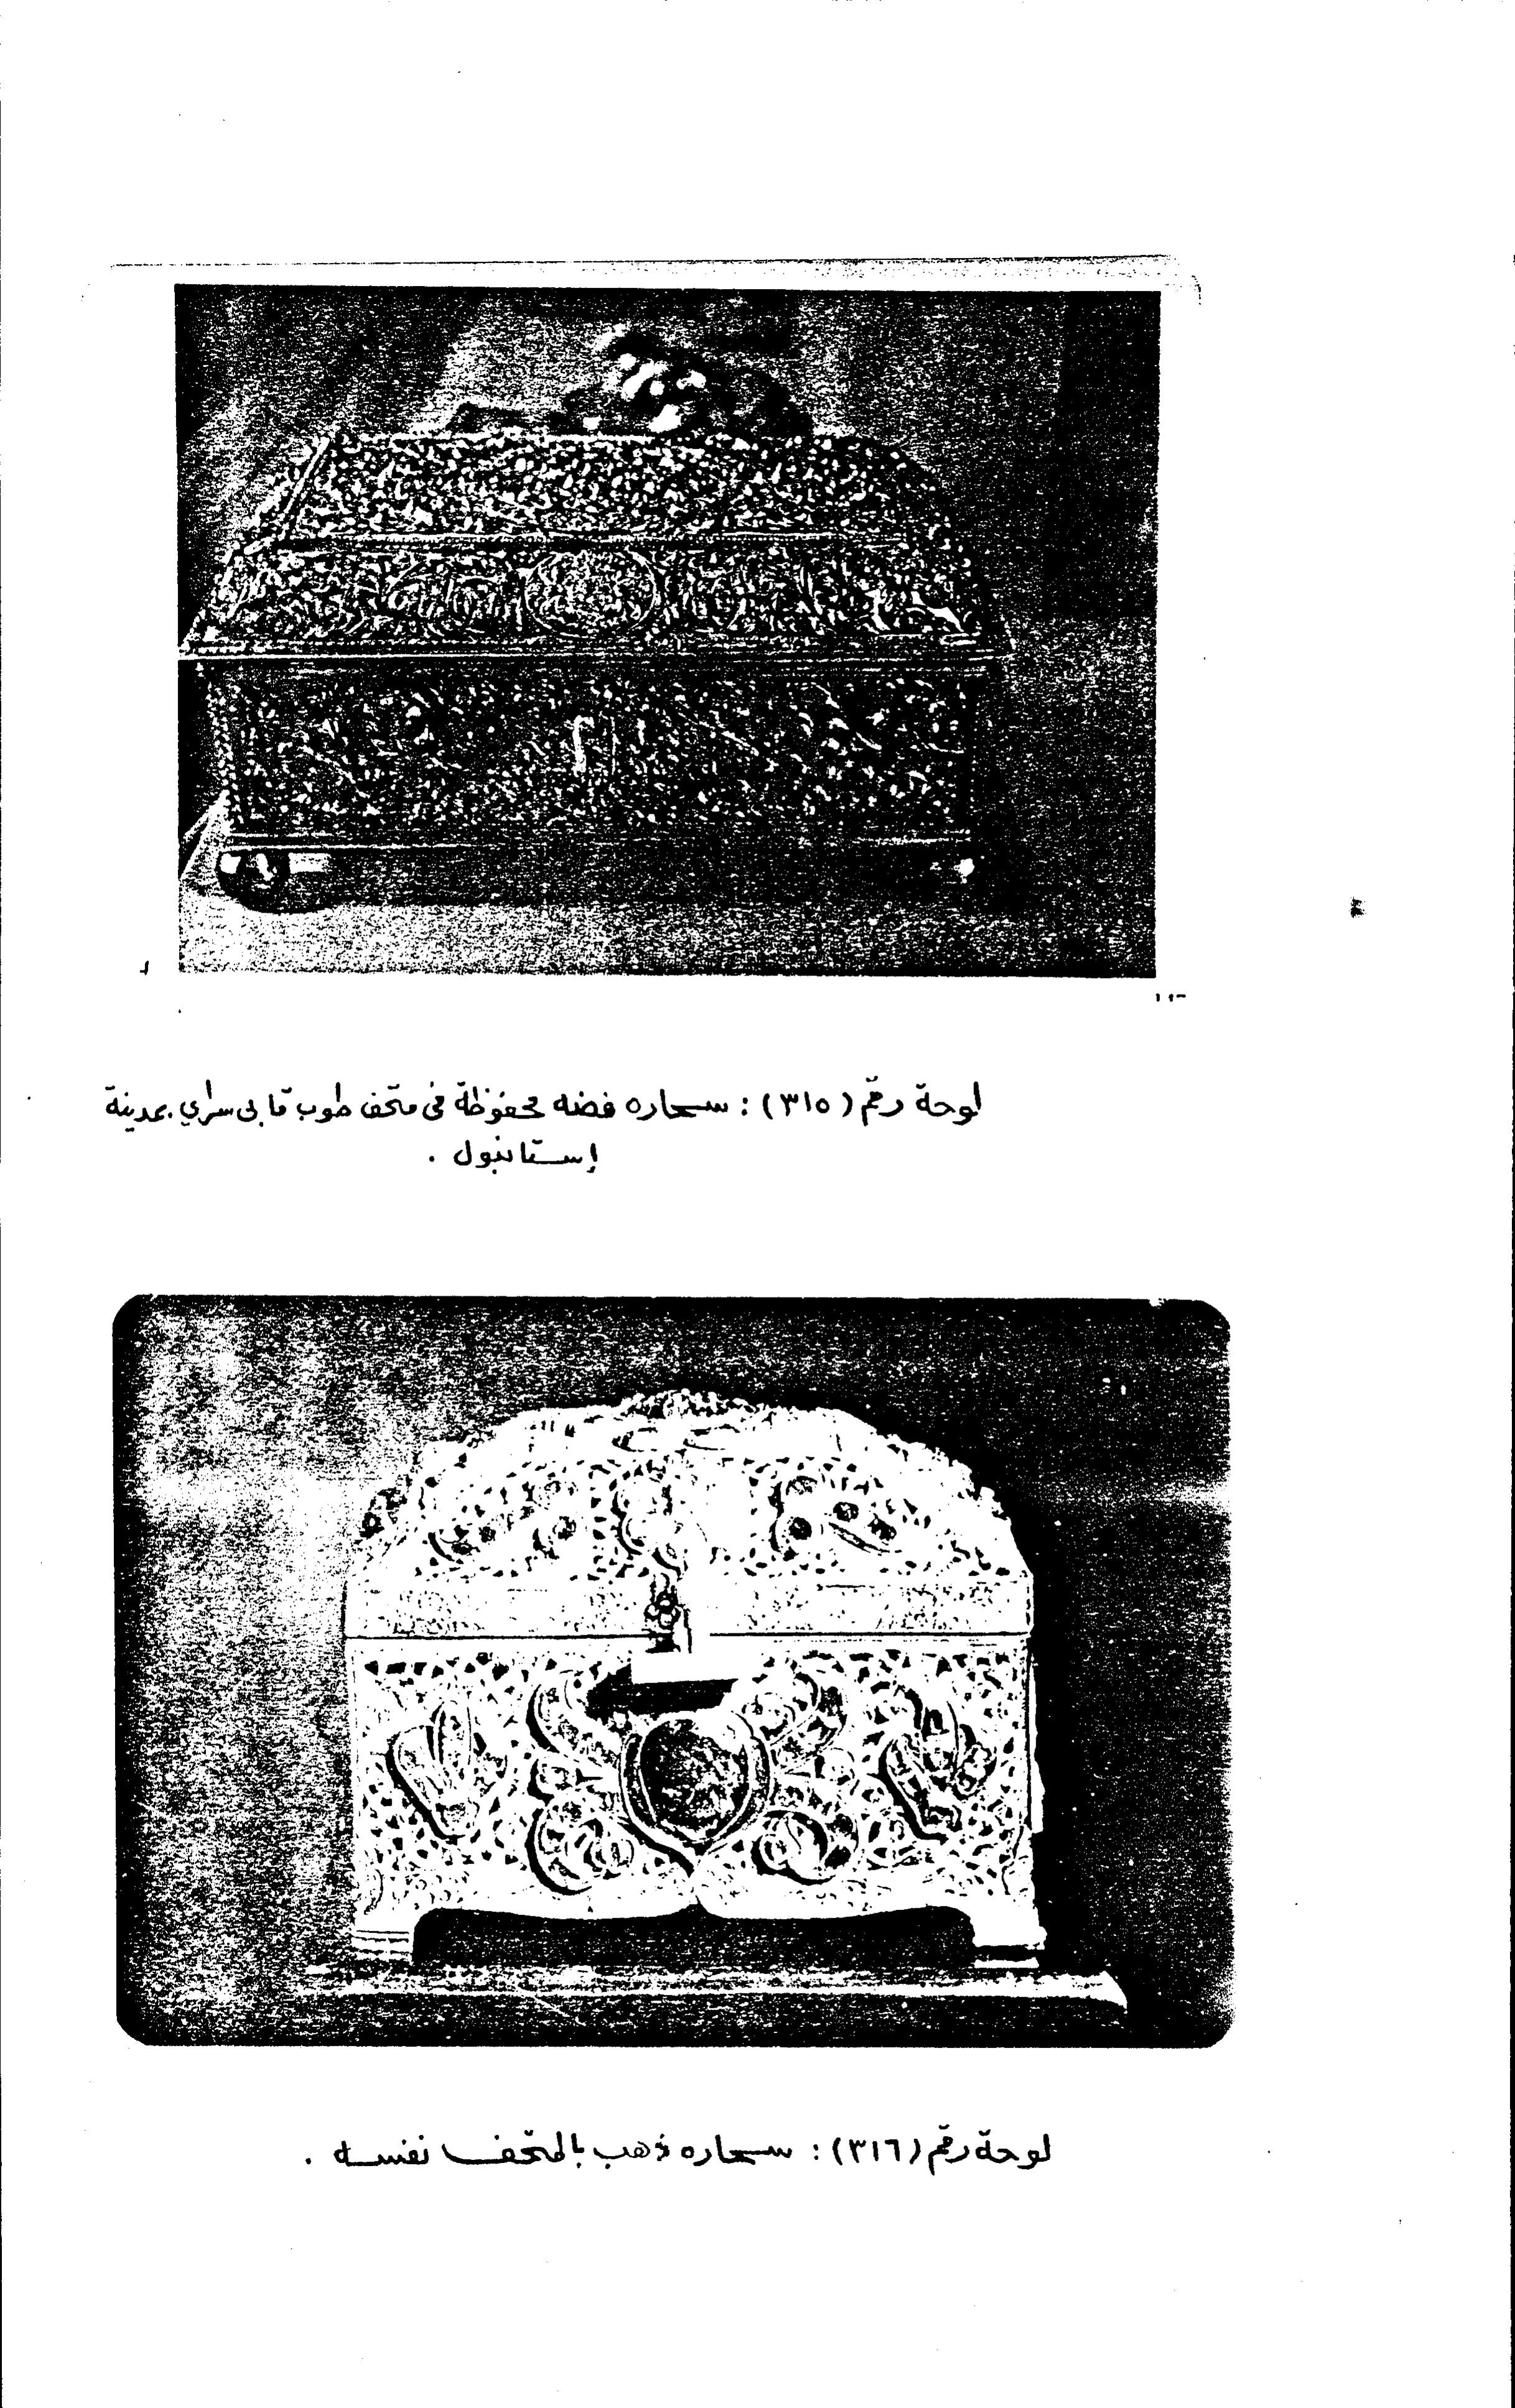 لوحة رقم (٣١٥) : سحاره فضه محفوظة فى متحف طوب قابى سراي بمدينة
إستانبول .
لوحة رقم (٣١٦) : سحاره ذهب بالمتحف نفسه .